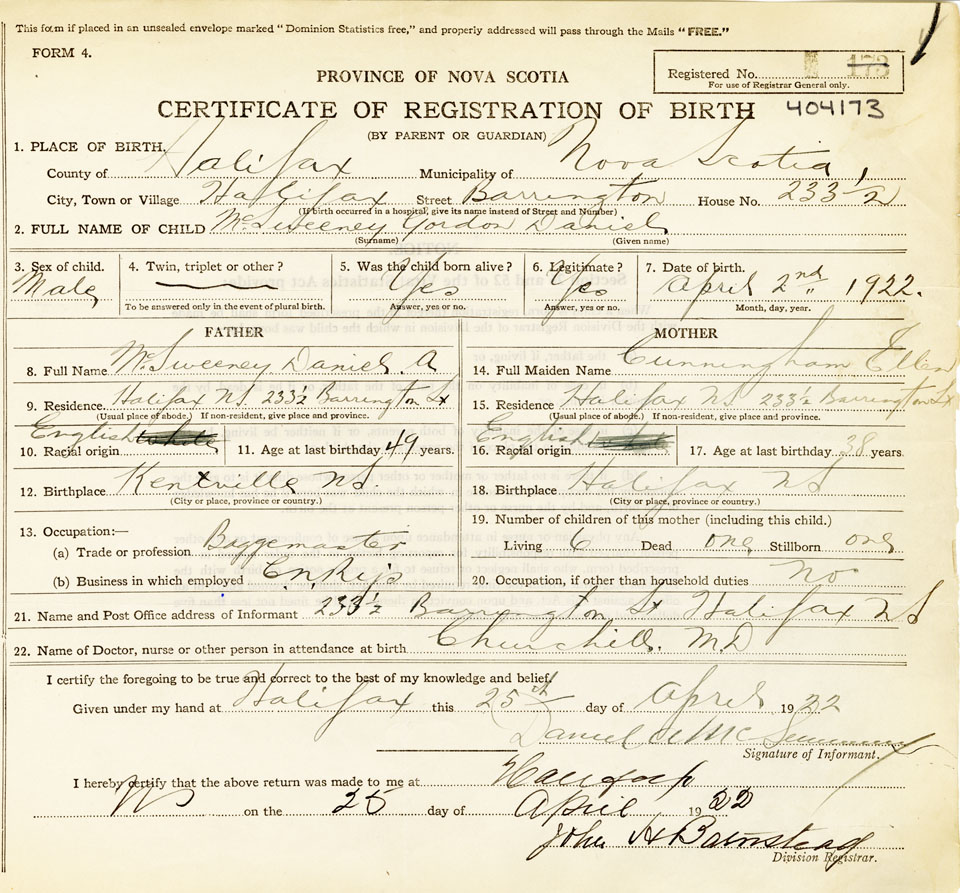 This form if placed in an unsealed envelope marked "Dominion Statistics free," and properly addressed will pass through the Mails "FREE."
FORM 4.
PROVINCE OF NOVA SCOTIA
Registered No. 173
For use of Registrar General only.
CERTIFICATE OF REGISTRATION OF BIRTH 404173
(BY PARENT OR GUARDIAN)
1. PLACE OF BIRTH.
County of Halifax Municipality of Nova Scotia
City, Town or Village Halifax Street Barrington House No. 233 1/2
(If birth occurred in a hospital, give its name instead of Street and Number)
2. FULL NAME OF CHILD McSweeney Gordon Daniel
(Surname) (Given name)
3. Sex of child. 4. Twin, triplet or other? 5. Was the child born alive? 6. Legitimate? 7. Date of birth.
Male Yes Yes April 2nd 1922.
To be answered only in the event of plural birth. Answer, yes or no. Answer, yes or no. Month, day, year.
FATHER MOTHER
8. Full Name McSweeney Daniel A 14. Full Maiden Name Cunningham Ellen
9. Residence Halifax NS. 233 1/2 Barrington St 15. Residence Halifax NS 233 1/2 Barrington St
(Usual place of abode.) If non-resident, give place and province. (Usual place of abode.) If non-resident, give place and province.
10. Racial origin English white 11. Age at last birthday 49 years. 16. Racial origin English 17. Age at last birthday 38 years
12. Birthplace Kentville NS 18. Birthplace Halifax NS
(City or place, province or country.) (City or place, province or country.)
13. Occupation:— 19. Number of children of this mother (including this child.)
(a) Trade or profession Baggemaster Living 6 Dead one Stillborn one
(b) Business in which employed 20. Occupation, if other than household duties No
21. Name and Post Office address of Informant 233 1/2 Barrington St Halifax NS
22. Name of Doctor, nurse or other person in attendance at birth Churchill. MD
I certify the foregoing to be true and correct to the best of my knowledge and belief.
Given under my hand at Halifax this 25th day of April 1922
Daniel A McSweeney
Signature of Informant.
I hereby certify that the above return was made to me at Halifax
NS on the 25 day of April 1922
John H Barnstead
Division Registrar.